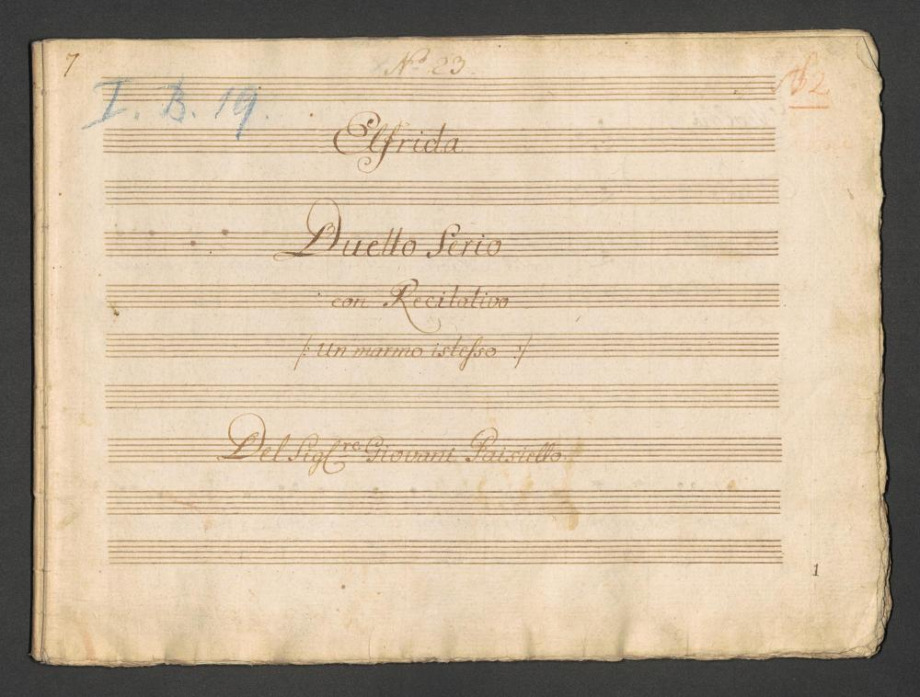 7
No 23
I. B. 19.
Elfrida
Duetto Serio
con Recitativo
/: Un marmo istesso :/
Del Sigl.re Giovani Paisiello.
1